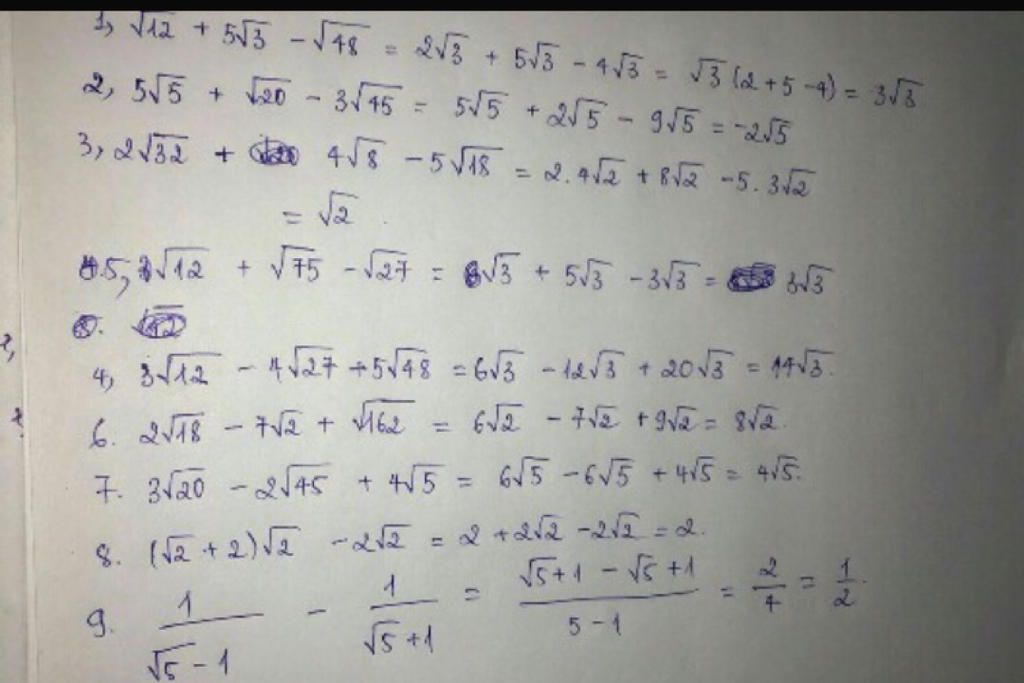 1, √12 + 5√3 - √48 = 2√3 + 5√3 - 4√3 = √3 (2 + 5 - 4) = 3√3
2, 5√5 + √20 - 3√45 = 5√5 + 2√5 - 9√5 = -2√5
3, 2√32 + 4√8 - 5√18 = 2.4√2 + 8√2 - 5.3√2
= √2.
5, √12 + √75 - √27 = √3 + 5√3 - 3√3 = 3√3
4, 3√12 - 4√27 + 5√48 = 6√3 - 12√3 + 20√3 = 14√3.
6. 2√18 - 7√2 + √162 = 6√2 - 7√2 + 9√2 = 8√2.
7. 3√20 - 2√45 + 4√5 = 6√5 - 6√5 + 4√5 = 4√5.
8. (√2 + 2)√2 - 2√2 = 2 + 2√2 - 2√2 = 2.
9. 1/(√5 - 1) - 1/(√5 + 1) = (√5 + 1 - √5 + 1)/(5 - 1) = 2/4 = 1/2.